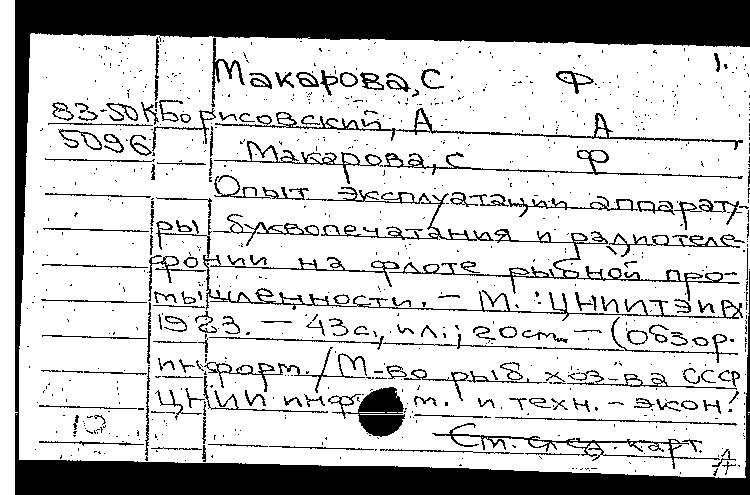 1.
Макарова, С Ф
83-50К Борисовский, А А
5096 Макарова, С Ф
Опыт эксплуатации аппарату-
ры буквопечатания и радиотеле-
фонии на флоте рыбной про-
мышленности. – М.: ЦНИИТЭИРХ
1983. – 43с, ил.; 20см – (Обзор.
информ. / М-во рыб. хоз-ва СССР
ЦНИИ инф м. и техн.-экон.
10
См. след. карт.
А